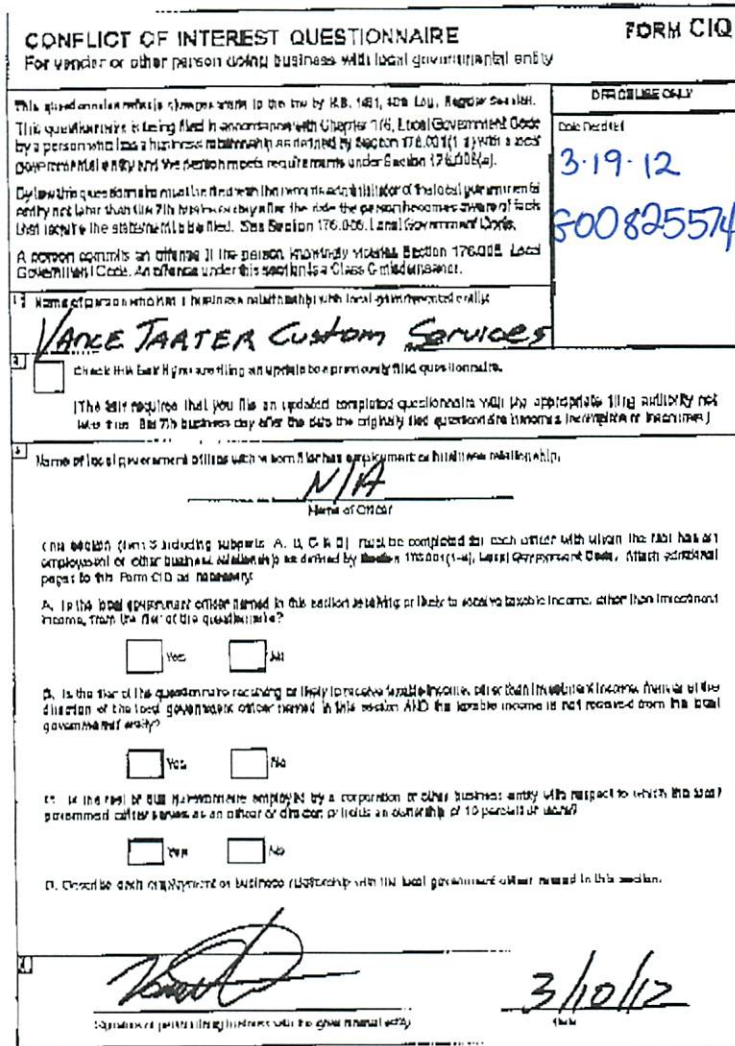 CONFLICT OF INTEREST QUESTIONNAIRE
FORM CIQ
For vendor or other person doing business with local governmental entity
This questionnaire reflects changes made to the law by H.B. 1491, 80th Leg., Regular Session.
OFFICE USE ONLY
This questionnaire is being filed in accordance with Chapter 176, Local Government Code
by a person who has a business relationship as defined by Section 176.001(1-a) with a local
governmental entity and the person meets requirements under Section 176.006(a).
Date Received
3-19-12
By law this questionnaire must be filed with the records administrator of the local governmental
entity not later than the 7th business day after the date the person becomes aware of facts
that require the statement to be filed. See Section 176.006, Local Government Code.
800825574
A person commits an offense if the person knowingly violates Section 176.006, Local
Government Code. An offense under this section is a Class C misdemeanor.
1 Name of person who has a business relationship with local governmental entity.
VANCE TARTER Custom Services
2
Check this box if you are filing an update to a previously filed questionnaire.
(The law requires that you file an updated completed questionnaire with the appropriate filing authority not
later than the 7th business day after the date the originally filed questionnaire becomes incomplete or inaccurate.)
3 Name of local government officer with whom filer has employment or business relationship.
N/A
Name of Officer
This section (item 3 including subparts A, B, C & D) must be completed for each officer with whom the filer has an
employment or other business relationship as defined by Section 176.001(1-a), Local Government Code. Attach additional
pages to this Form CIQ as necessary.
A. Is the local government officer named in this section receiving or likely to receive taxable income, other than investment
income, from the filer of the questionnaire?
Yes No
B. Is the filer of the questionnaire receiving or likely to receive taxable income, other than investment income, from or at the
direction of the local government officer named in this section AND the taxable income is not received from the local
governmental entity?
Yes No
C. Is the filer of this questionnaire employed by a corporation or other business entity with respect to which the local
government officer serves as an officer or director, or holds an ownership of 10 percent or more?
Yes No
D. Describe each employment or business relationship with the local government officer named in this section.
4
3/10/12
Signature of person doing business with the governmental entity
Date